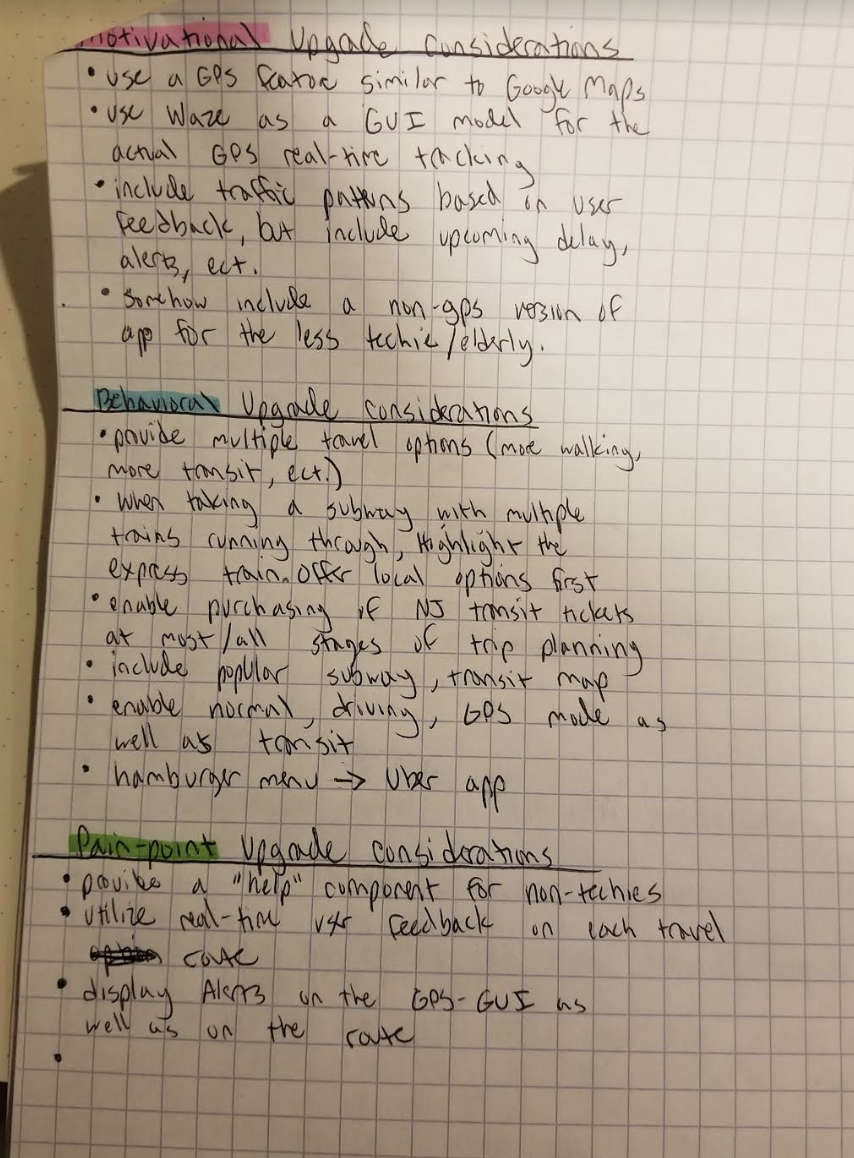 Motivational Upgade Considerations
• use a GPS featue similar to Google Maps
• use Waze as a GUI model for the
actual GPS real-time tracking
• include traffic patterns based on user
feedback, but include upcoming delay,
alerts, ect.
• somhow include a non-gps version of
app for the less techie/elderly.
Behavioral Upgade considerations
• provide multiple travel options (more walking,
more transit, ect.)
• When taking a subway with multiple
trains running through, Highlight the
express train. Offer local options first
• enable purchasing of NJ transit tickets
at most/all stages of trip planning
• include popular subway, transit map
• enable normal, driving, GPS mode as
well as transit
• hamburger menu → Uber app
Pain-point Upgade considerations
• provide a "help" component for non-techies
• utilize real-time user feedback on each travel
route
• display Alerts on the GPS-GUI as
well as on the route
•